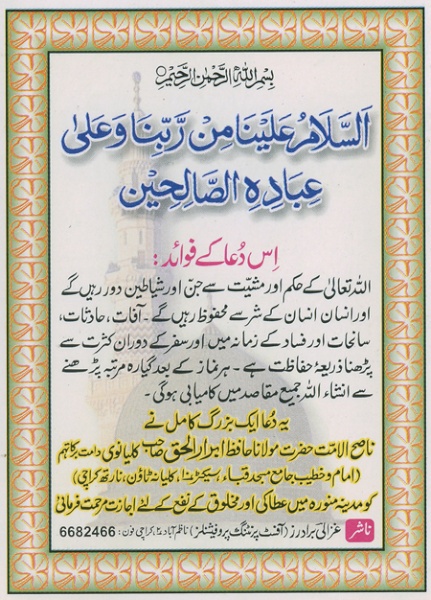 بسم اللہ الرحمٰن الرحیم
اَلسَّلَامُ عَلَيْنَا مِنْ رَّبِّنَا وَعَلٰى
عِبَادِهِ الصَّالِحِيْن
اِس دُعا کے فوائد:
اللہ تعالیٰ کے حکم اور مشیّت سے جنّ اور شیاطین دور رہیں گے
اور انسان انسان کے شر سے محفوظ رہیں گے۔ آفات، حادثات،
سانحات اور فساد کے زمانہ میں اور سفر کے دوران کثرت سے
پڑھنا ذریعۂ حفاظت ہے۔ ہر نماز کے بعد گیارہ مرتبہ پڑھنے
سے انشاء اللہ جمیع مقاصد میں کامیابی ہوگی۔
یہ دُعا ایک بزرگ کامل نے
ناصح الامّت حضرت مولانا حافظ ابرار الحق صاحب کلیانوی دامت برکاتہم
(امام و خطیب جامع مسجد قباء، سیکٹر، کلیانہ ٹاؤن، نارتھ کراچی)
کو مدینہ منورہ میں عطا کی اور مخلوق کے نفع کے لئے اجازت مرحمت فرمائی
ناشر غزالی برادرز (آفسٹ پرنٹنگ پروفیشنلز) ناظم آباد کراچی فون: 6682466